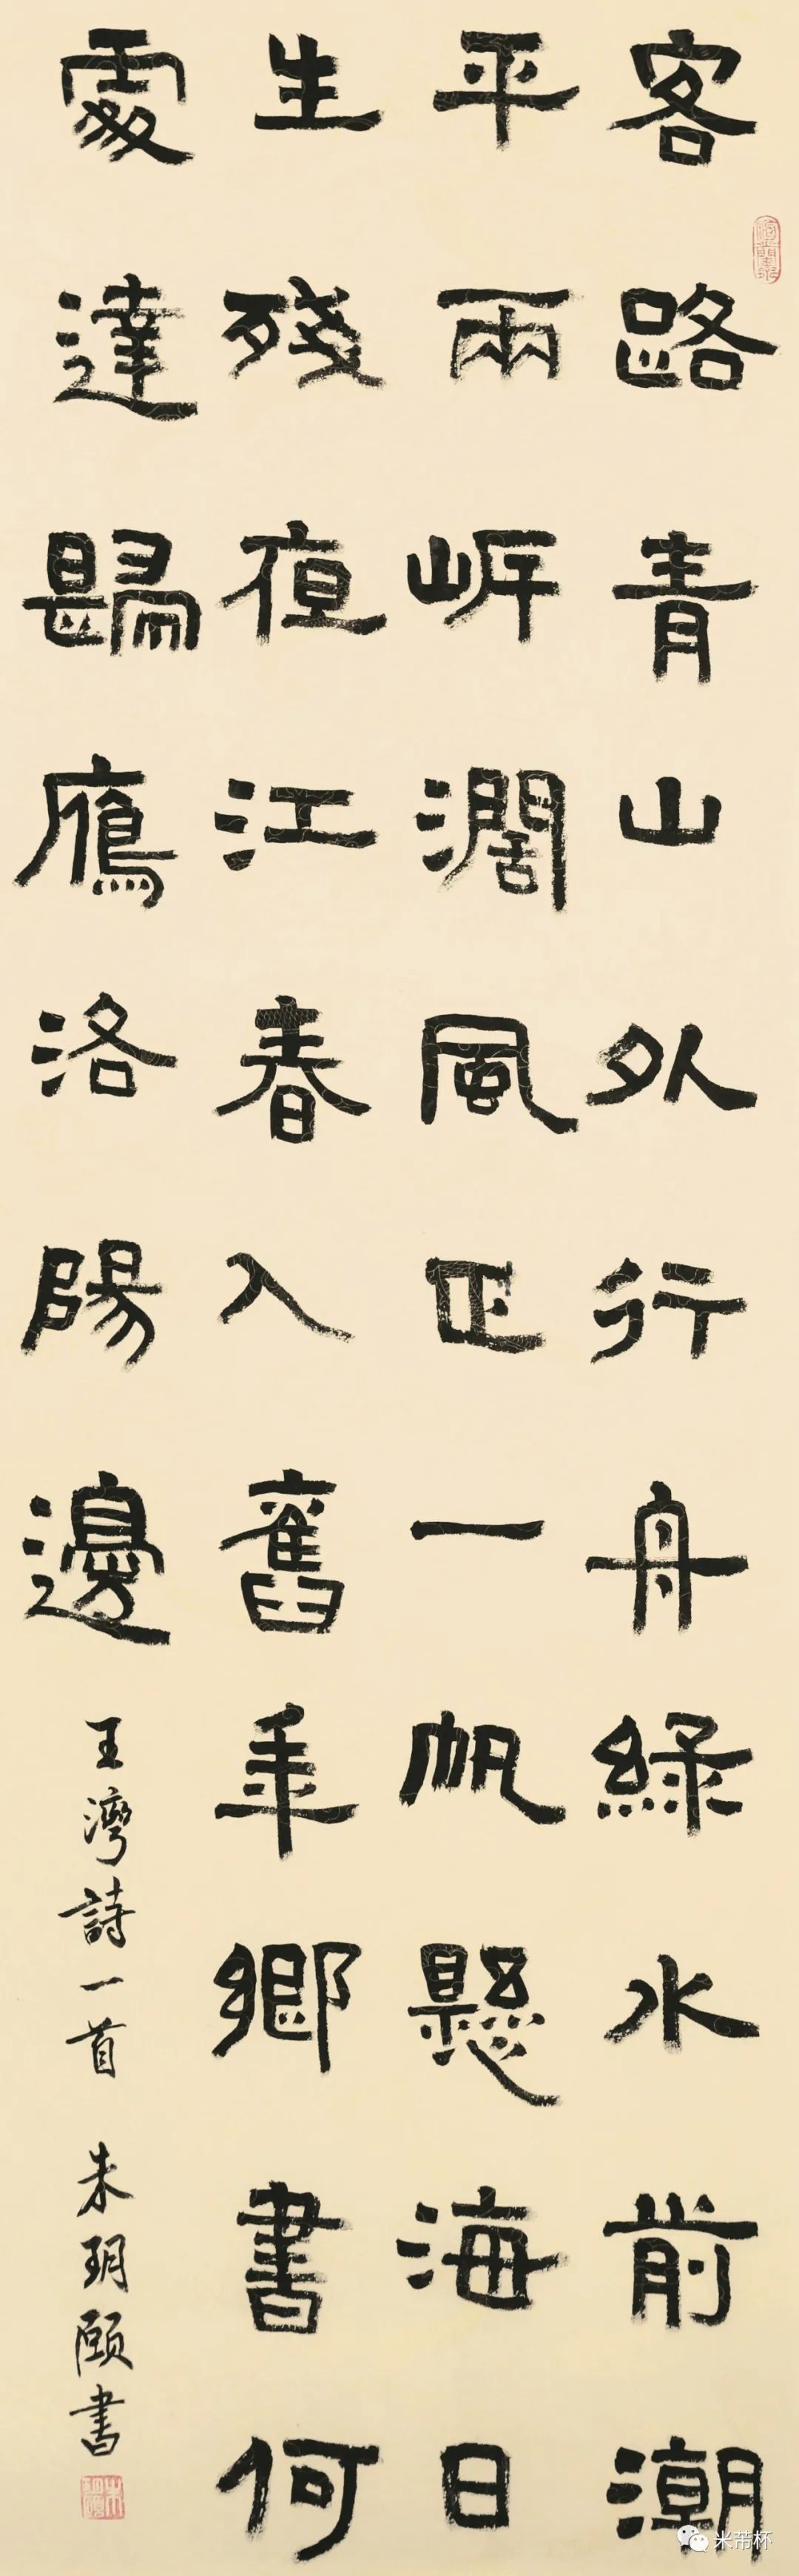 客路青山外行舟綠水前潮
平兩岍濶風正一帆懸海日
生殘夜江春入舊年鄉書何
處達歸鴈洛陽邊
王灣詩一首 朱玥頤書
米芾杯